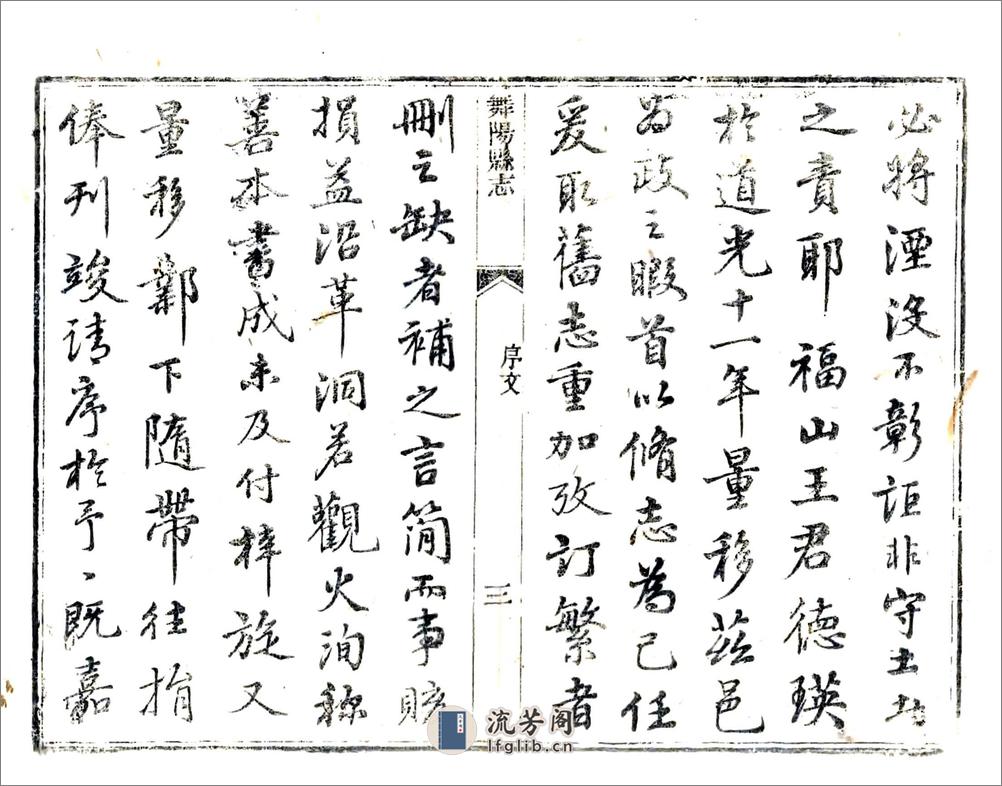 必將湮沒不彰詎非守土者
之責耶福山王君德瑛
於道光十一年量移茲邑
為政之暇首以脩志為己任
爰取舊志重加攷訂繁者
舞陽縣志
序文
三
刪之缺者補之言簡而事賅
損益沿革洞若觀火洵稱
善本書成未及付梓旋又
量移鄴下隨帶往捐
俸刊竣請序於予〻既嘉
流芳阁
lfglib.cn